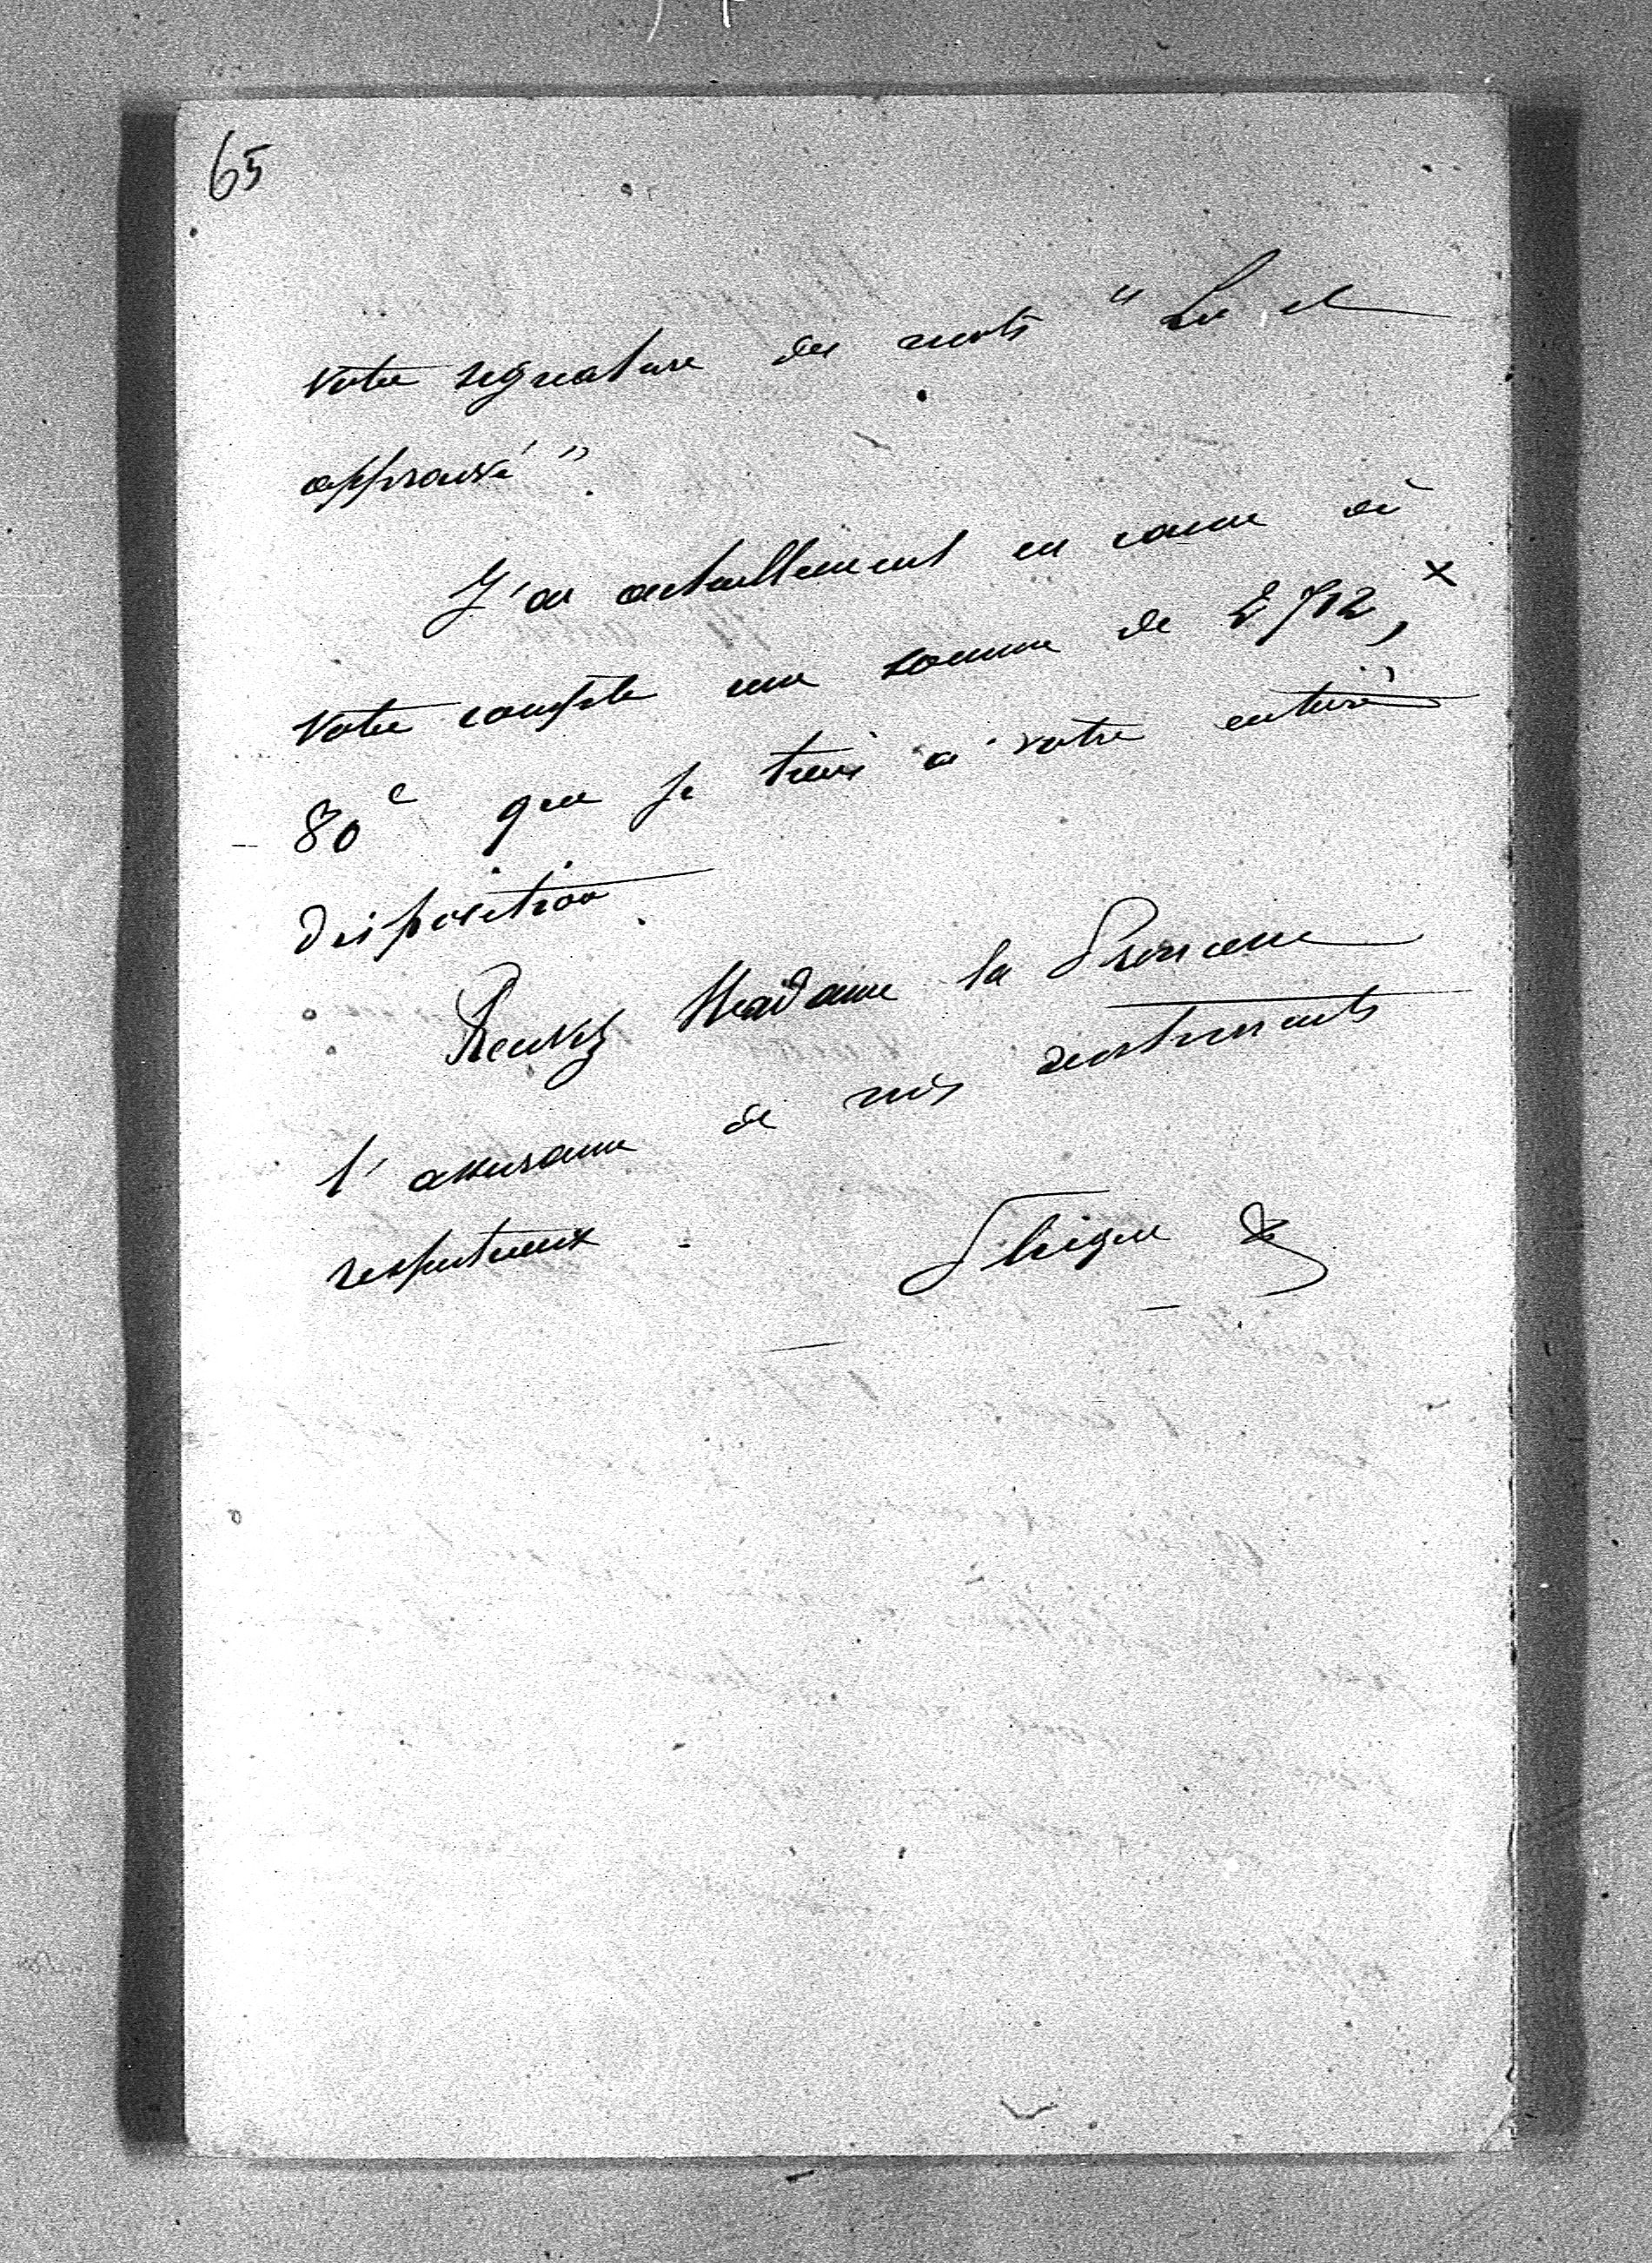 65
votre signature des mots " Lu et
approuvé ".
J'ai actuellement en caisse à
votre compte une somme de 2712, x
80 c que je tiens à votre entière
disposition.
Recevez Madame la Princesse
l'assurance de mes sentiments
respectueux.